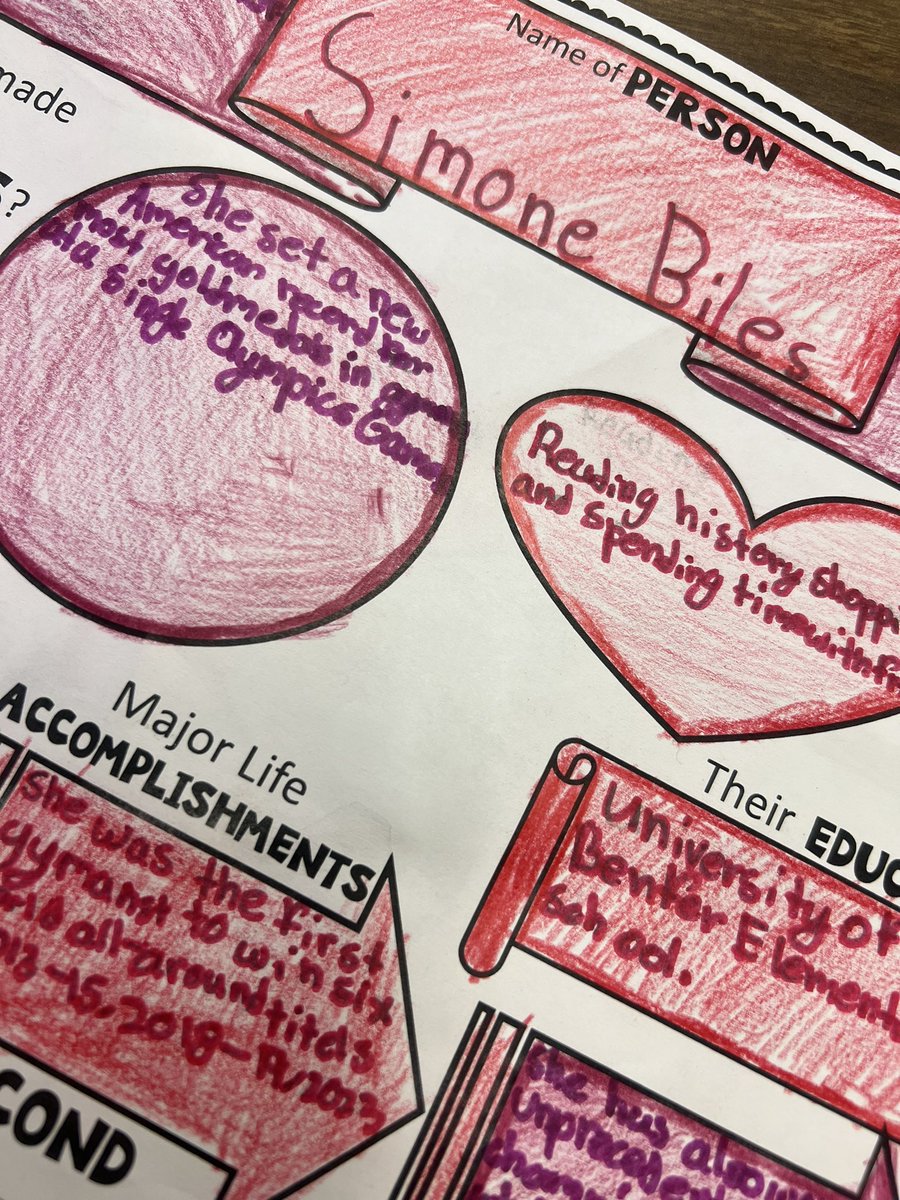 Name of PERSON
Simone Biles
made
?
She set a new
American record for
most goldmedals in gym
at a single Oympics Game
Reading history shoppi
and spending timewithfr
Major Life
ACCOMPLISHMENTS
She was the first
gymanst to win six
all-around titels
-15, 2018-19/2023
Their EDUC
University of
Benfer Element
school.
COND
She has also
unpraceden
champi